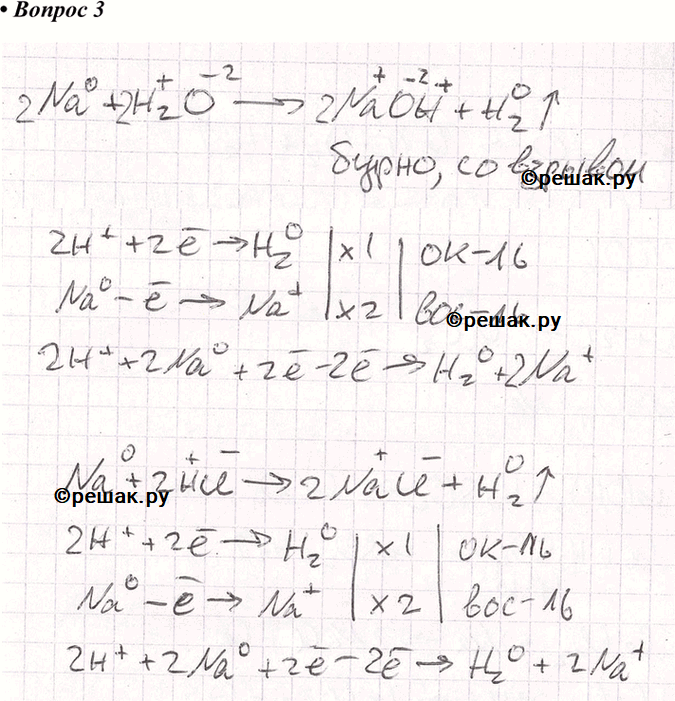 • Вопрос 3
2Na⁰ + 2H₂⁺O⁻² → 2Na⁺O⁻²H⁺ + H₂⁰↑
бурно, со взрывом
©решак.ру
2H⁺ + 2ē → H₂⁰ | x1 | ок-ль
Na⁰ - ē → Na⁺ | x2 | вос-ль
©решак.ру
2H⁺ + 2Na⁰ + 2ē - 2ē → H₂⁰ + 2Na⁺
Na⁰ + 2H⁺Cl⁻ → 2Na⁺Cl⁻ + H₂⁰↑
©решак.ру
2H⁺ + 2ē → H₂⁰ | x1 | ок-ль
Na⁰ - ē → Na⁺ | x2 | вос-ль
2H⁺ + 2Na⁰ + 2ē - 2ē → H₂⁰ + 2Na⁺